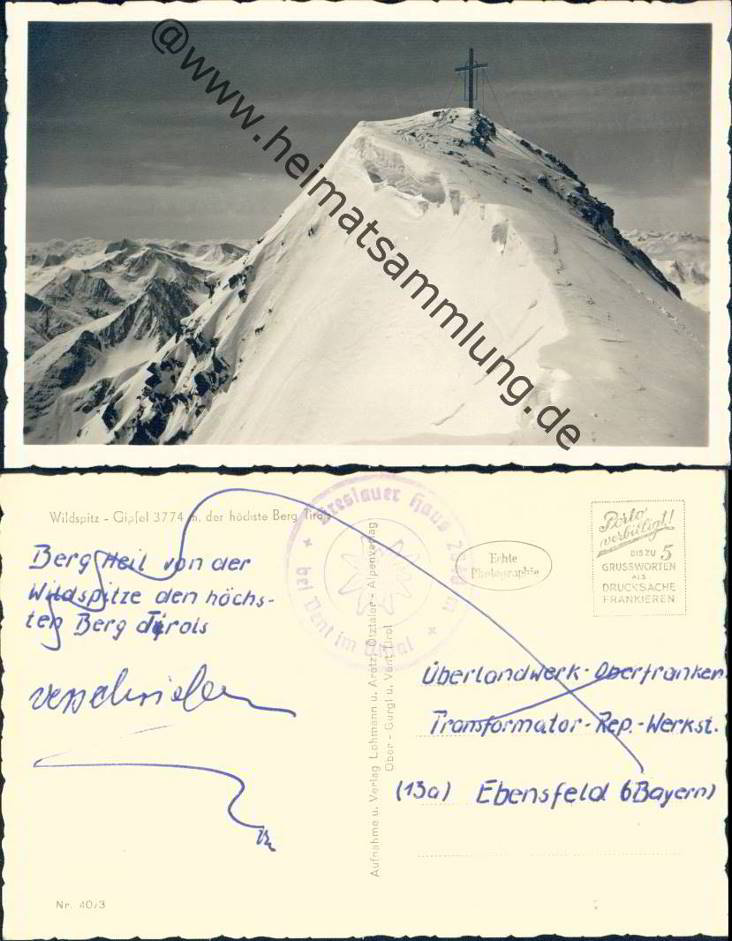 @www.heimatsammlung.de
Wildspitz - Gipfel 3774 m, der höchste Berg Tirols
Berg Heil von der
Wildspitze den höchs-
ten Berg Tirols
verschrieben
Nr. 40/3
Breslauer Haus 2848 m
bei Vent im Ötztal
Aufnahme u. Verlag Lohmann u. Aratz, Ötztaler - Alpenverlag
Ober - Gurgl u. Vent Tirol
Echte
Photographie
Porto
verbilligt!
BIS ZU 5
GRUSSWORTEN
ALS
DRUCKSACHE
FRANKIEREN
Überlandwerk-Oberfranken
Transformator-Rep.-Werkst.
(13a) Ebensfeld (Bayern)